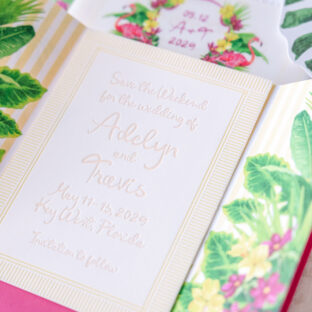 09.12
A + T
2029
Save the Weekend
for the wedding of
Adelyn
and
Travis
May 11-13, 2029
Key West, Florida
Invitation to follow